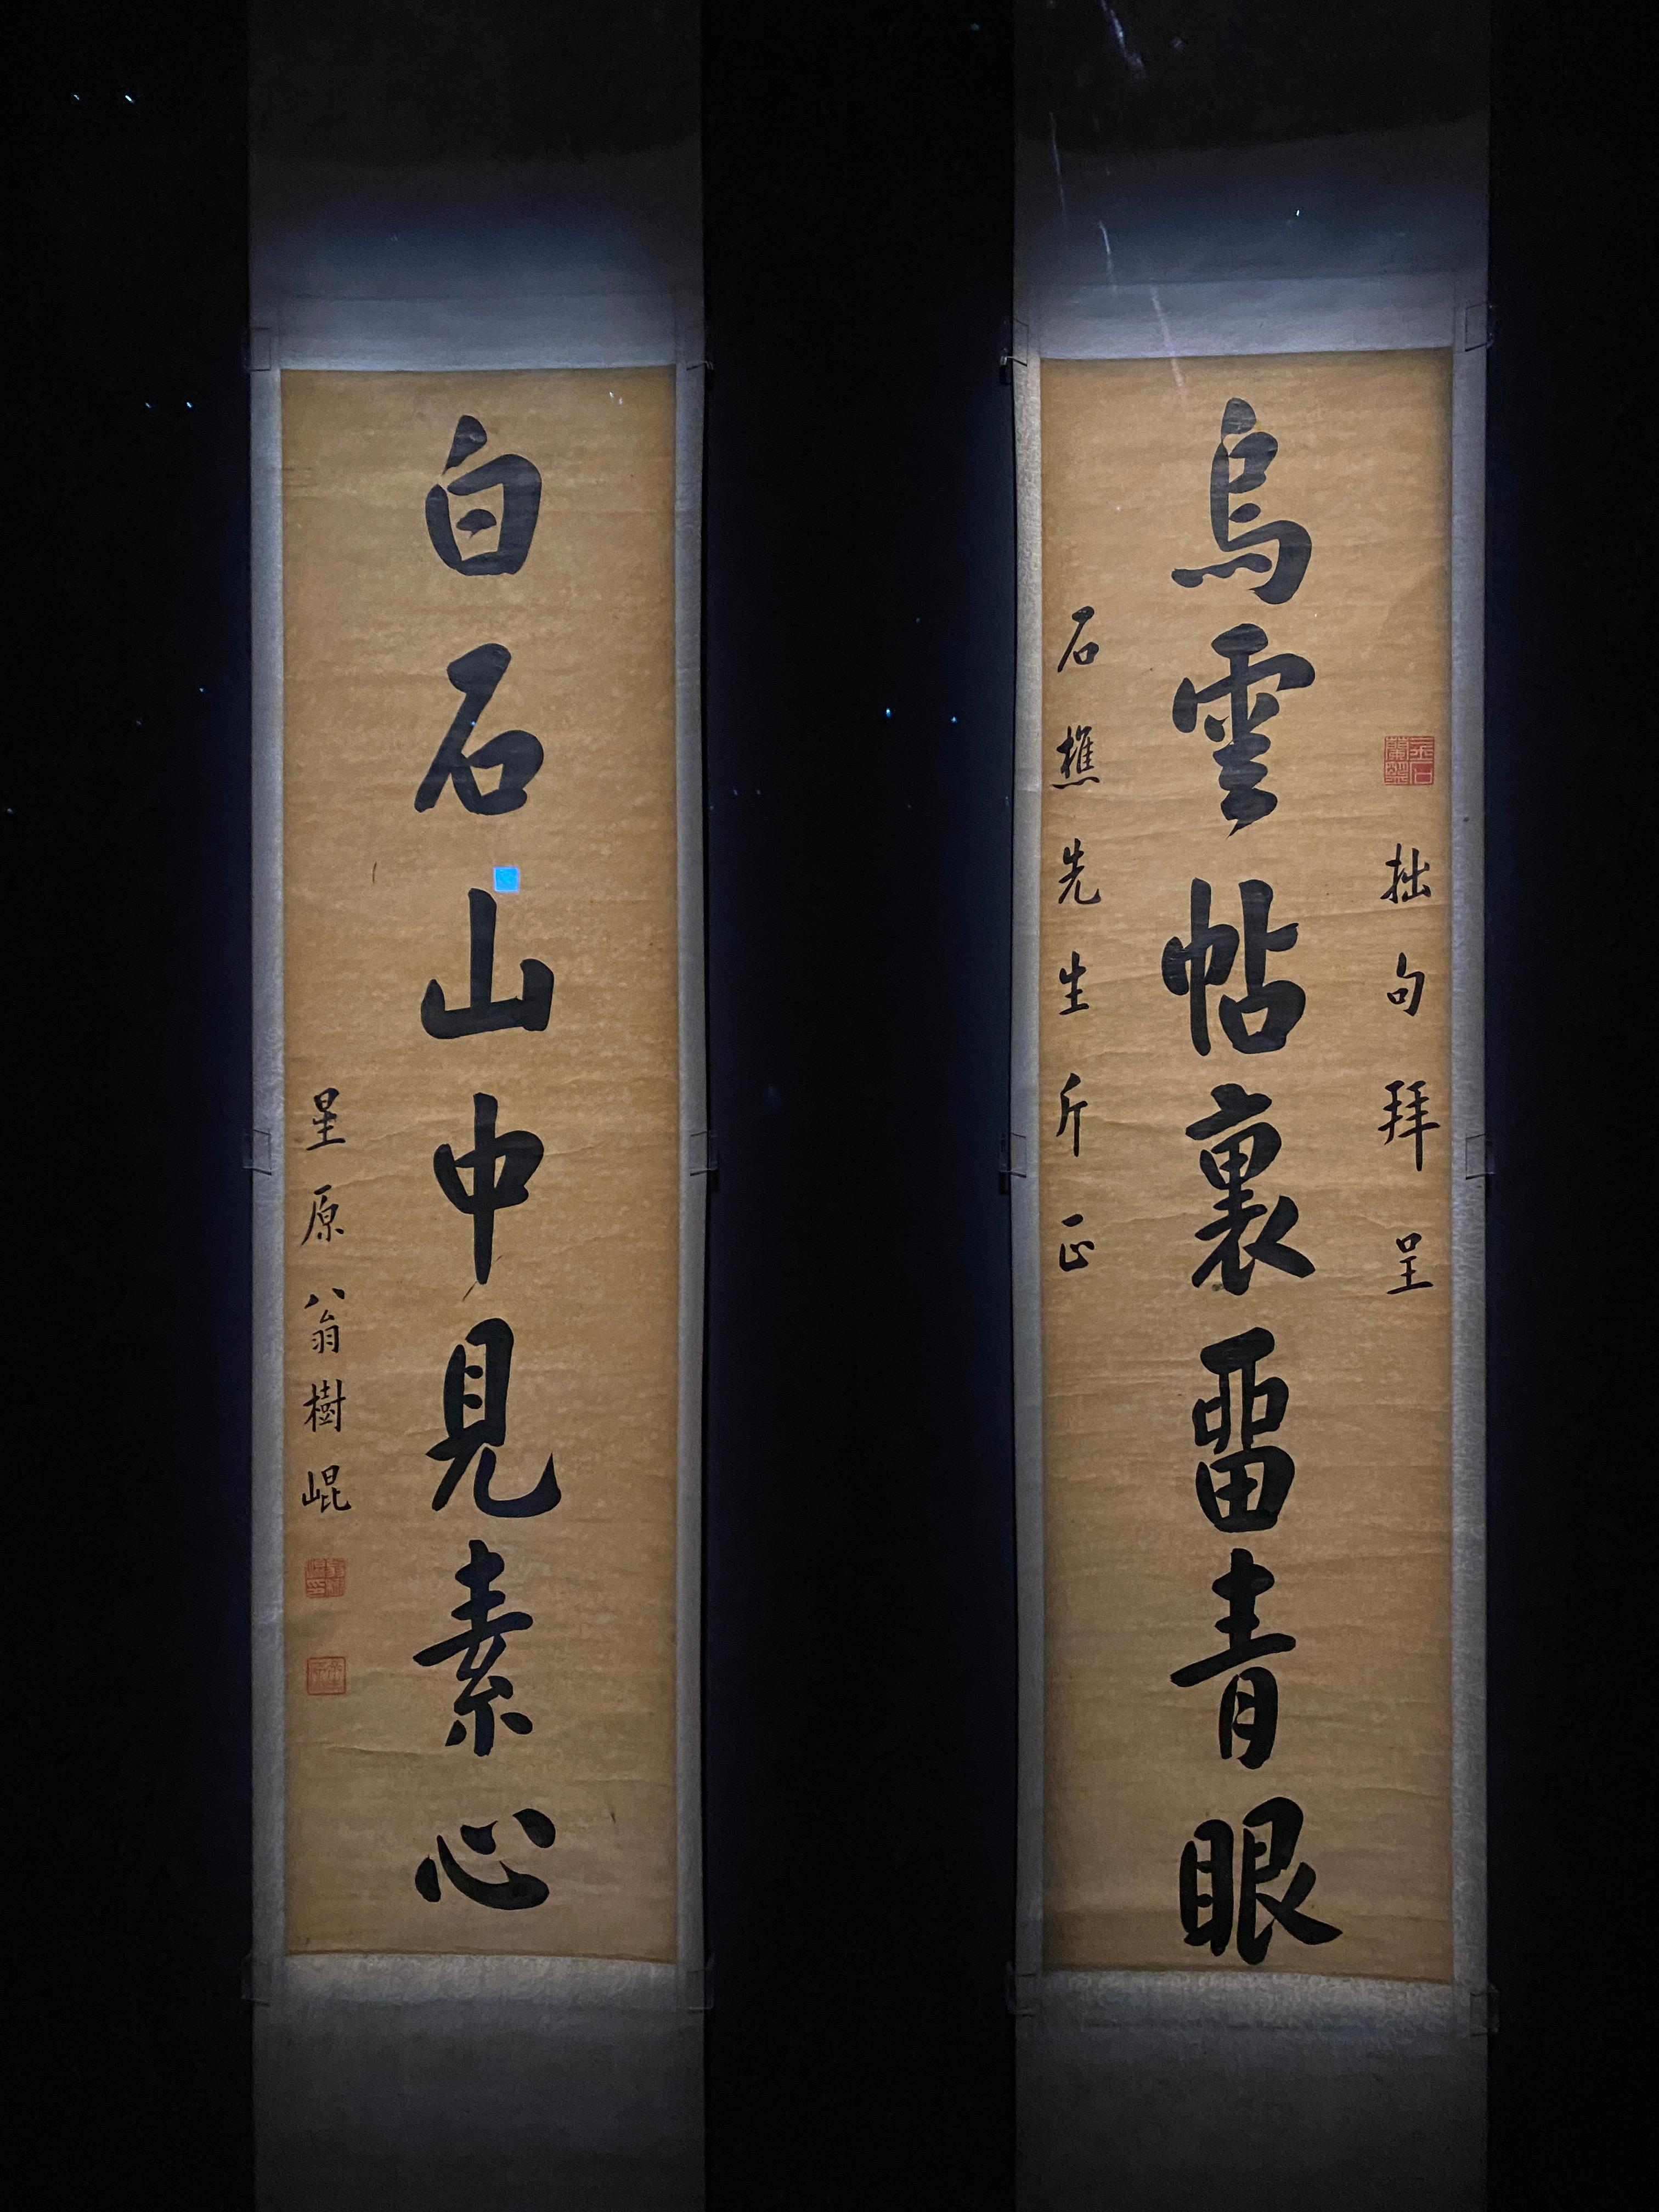 拙句拜呈
烏雲帖裏留青眼
石樵先生斤正
白石山中見素心
星原翁樹崐